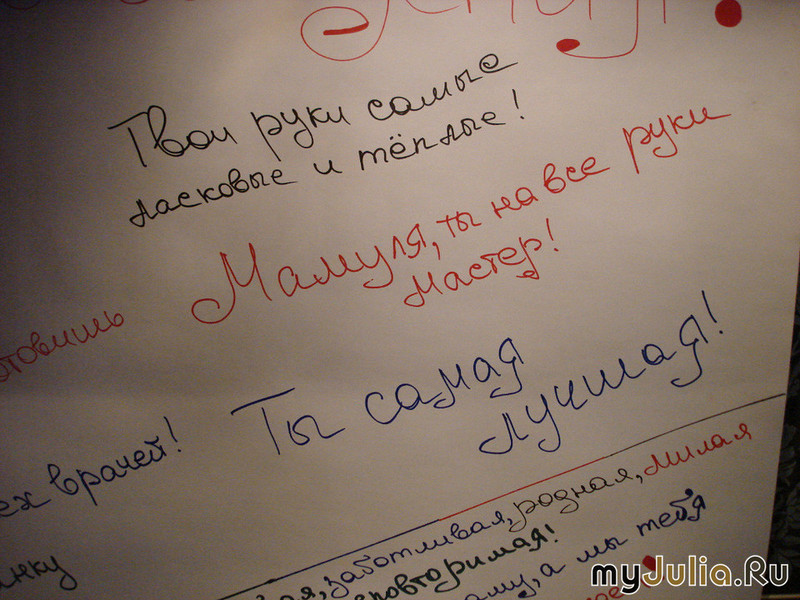 Твои руки самые
ласковые и тёплые!
Мамуля, ты на все руки
мастер!
отовишь
Ты самая
лучшая!
ех врачей!
анку
ая, заботливая, родная, милая
повторимая!
аму, а мы тебя
myJulia.Ru